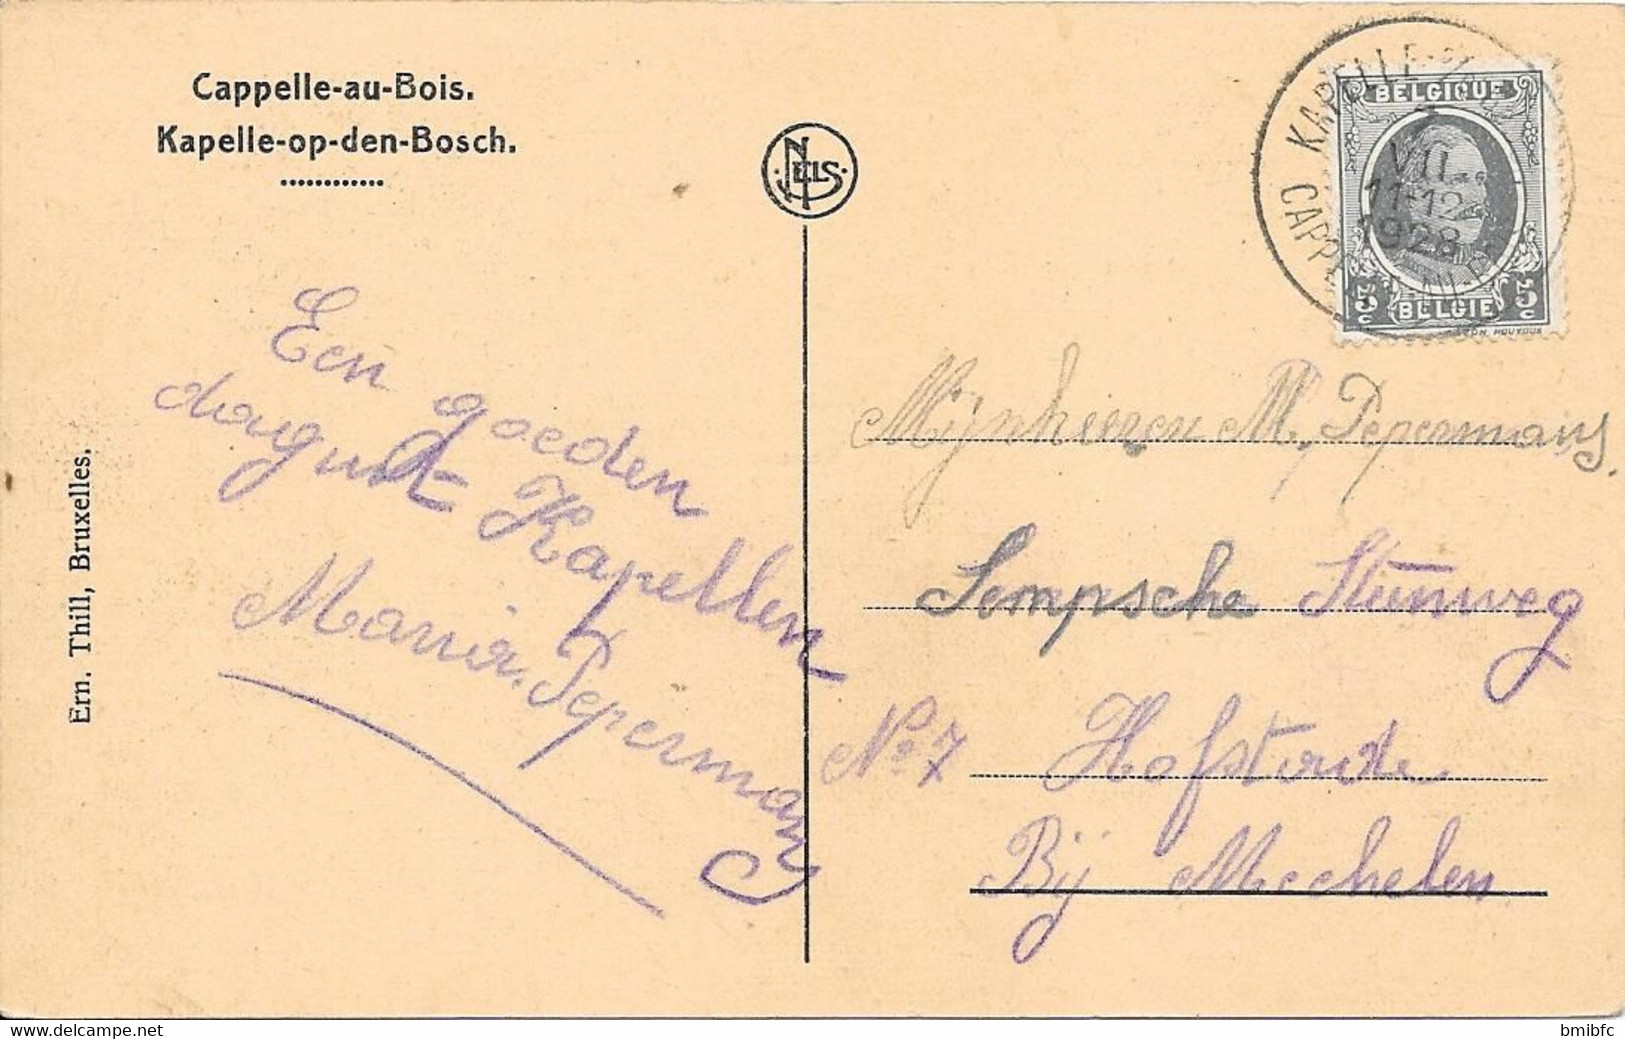 Cappelle-au-Bois.
Kapelle-op-den-Bosch.
NELS
Ern. Thill, Bruxelles.
Een goeden
dag uit Kapellen
Maria. Pepermans
BELGIQUE
VII
11-12
1928
5 c BELGIE 5 c
Mijnheeren M, Pepermans.
Sempsche Steenweg
No 7 Hofstade
Bij Mechelen
bmibfc